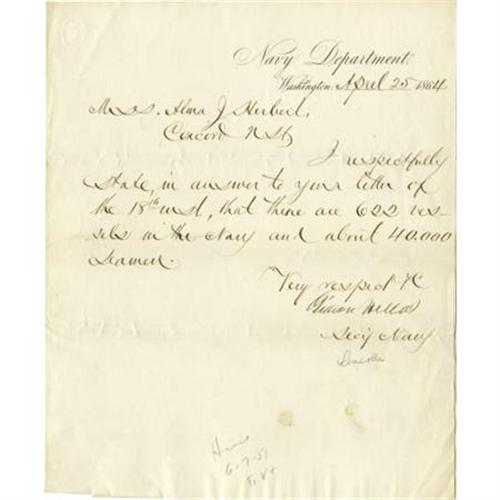 Navy Department.
Washington, April 25 1864
Miss. Alma J Herbert,
Concord N H
I respectfully
state, in answer to your letter of
the 18th inst, that there are 622 ves-
sels in the Navy and about 40.000
Seamen.
Very respect &c
Gideon Welles
Secy Navy
Lincoln
6-7-51